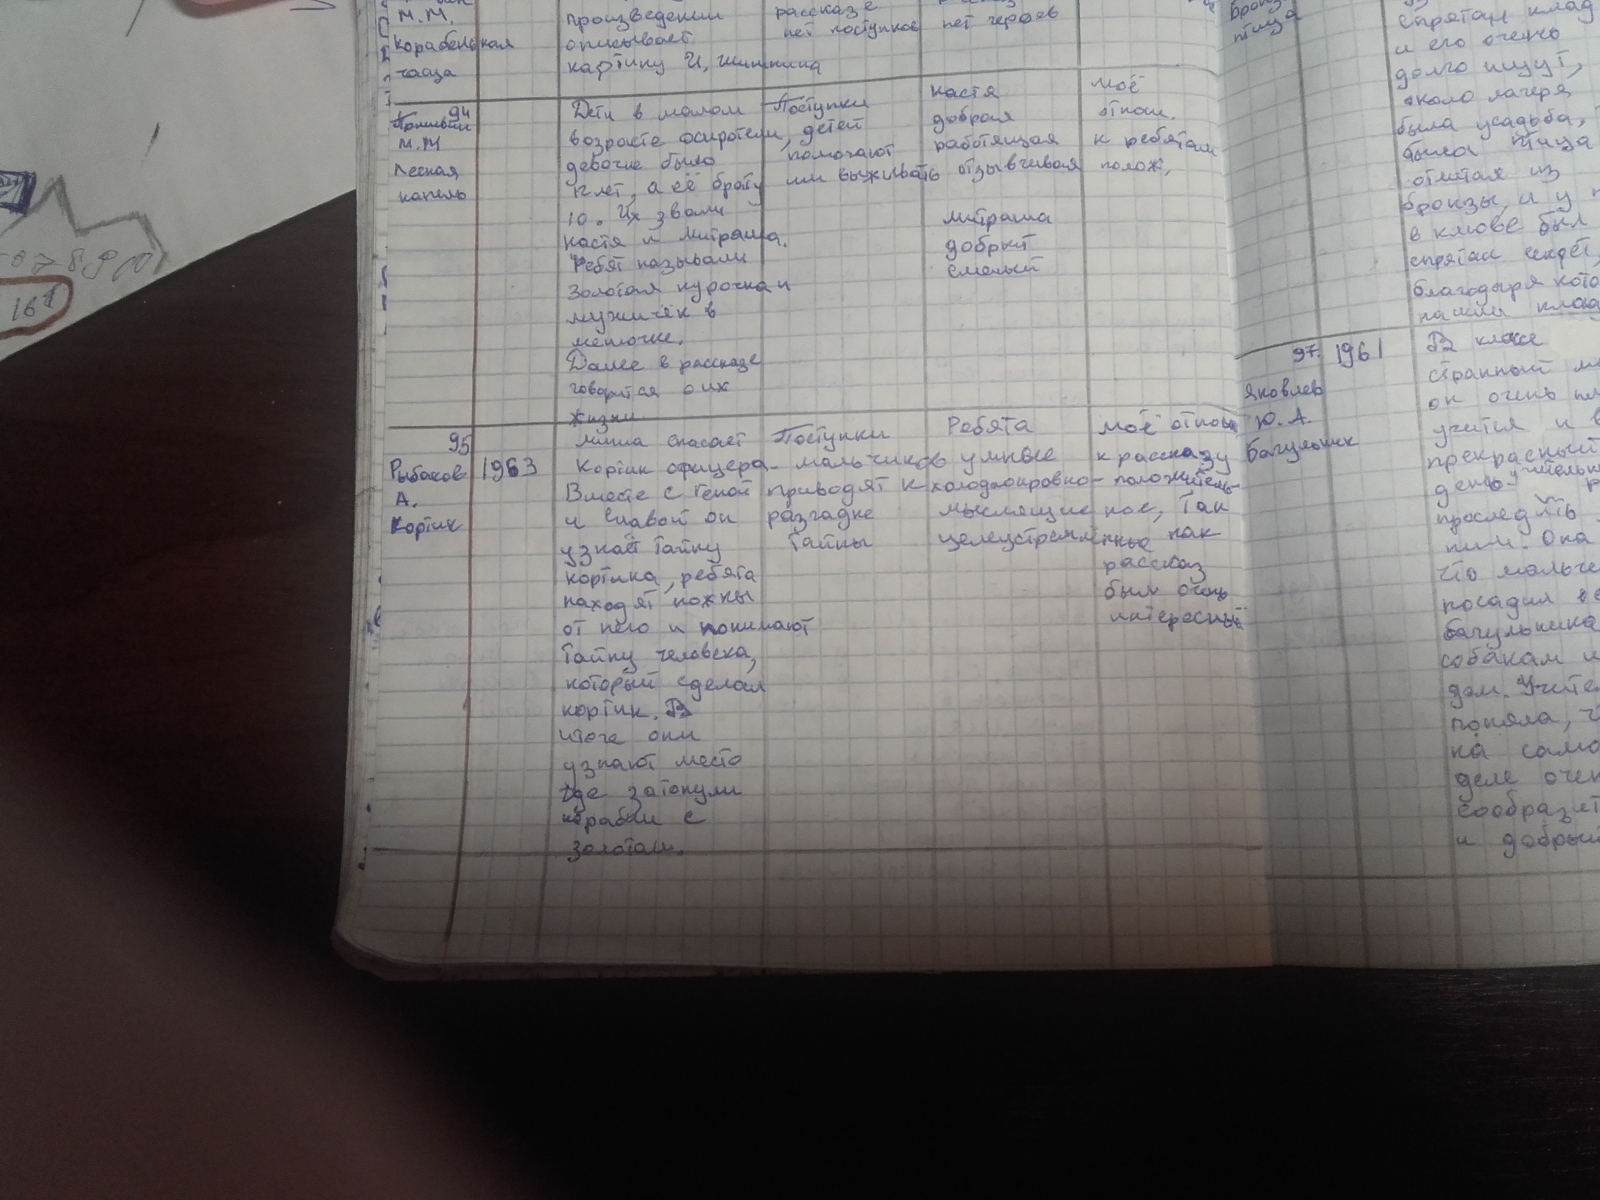 М.М.
Корабельная
чаща
произведении
описывает
картину И, Шишкина
рассказе
нет поступков
нет героев
94
Пришвин
М.М
Лесная
капель
Дети в малом
возрасте осиротели,
девочке было
12 лет, а её брату
10. Их звали
Настя и Митраша.
Ребят называли
Золотая курочка и
мужичёк в
мешочке.
Далее в рассказе
говорится о их
жизни
Поступки
детей
помогают
им выживать
Настя
добрая
работящая
отзывчивая
Митраша
добрый
смелый
моё
отнош.
к ребятам
полож,
95
Рыбаков
А.
Кортик
1963
Миша спасает
кортик офицера.
Вместе с Геной
и Славой он
узнаёт тайну
кортика, ребята
находят ножны
от него и понимают
тайну человека,
который сделал
кортик. В
итоге они
узнают место
где затонули
корабли с
золотом.
Поступки
мальчиков
приводят к
разгадке
тайны
Ребята
умные
холоднокровно-
мыслящие
целеустремлённые
моё отнош
к рассказу
положитель-
ное, так
как
рассказ
был очень
интересный
птица
спрятан клад
и его очень
долго ищут,
около лагеря
была усадьба,
была птица
отлитая из
бронзы, и у
в клюве был
спрятан секрет,
благодаря кото
нашли клад
97. 1961
Яковлев
Ю. А.
Багульник
В классе
странный
он очень
учится и в
прекрасный
день учительн
проследить
ним. Она
что мальчи
посадил в
багульника
собакам и
дом. Учите
поняла, ч
на само
деле очен
сообразит
и добрый
16